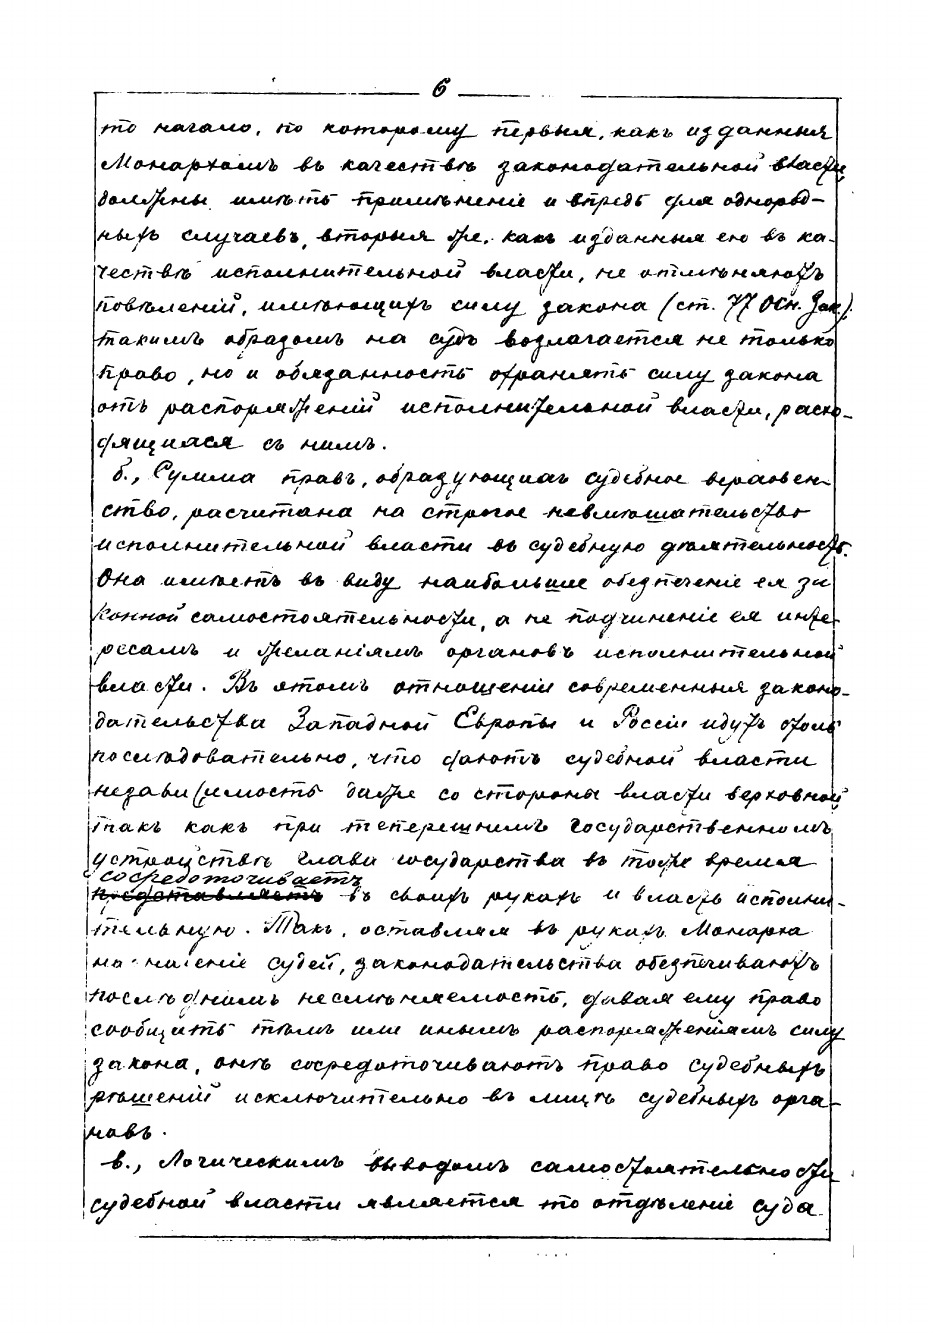 6
то начало, по которому первыя, какъ изданныя
Монархомъ въ качествѣ законодательной власти,
должны имѣть примѣненіе и впредь для однород-
ныхъ случаевъ, вторыя же, какъ изданныя ею въ ка-
чествѣ исполнительной власти, не отмѣняютъ
повѣленій, имѣющихъ силу закона (ст. 77 Осн. Зак.).
такимъ образомъ на судъ возлагается не только
право, но и обязанность охранять силу закона
отъ распоряженій исполнительной власти, расхо-
дящихся съ нимъ.
б., Сумма правъ, образующихъ судебное верховен-
ство, расчитана на строгое невмѣшательство
исполнительной власти въ судебную дѣятельность.
Она имѣетъ въ виду наибольшее обезпеченіе ея за
конной самостоятельности, а не подчиненіе ея инте-
ресамъ и желаніямъ органовъ исполнительной
власти. Въ этомъ отношеніи современныя законо-
дательства Западной Европы и Россіи идутъ столь
послѣдовательно, что даютъ судебной власти
независимость даже со стороны власти верховной
такъ какъ при теперешнемъ государственномъ
устройствѣ глава государства въ тоже время
сосредоточиваетъ
представляетъ въ своихъ рукахъ и власть исполни-
тельную. Такъ, оставляя въ рукахъ Монарха
назначеніе судей, законодательства обезпечиваютъ
послѣднимъ несмѣняемость, давая ему право
сообщить тѣмъ или инымъ распоряженіямъ силу
закона, онѣ сосредоточиваютъ право судебныхъ
рѣшеній исключительно въ лицѣ судебныхъ орга-
новъ.
в., Логическимъ выводомъ самостоятельности
судебной власти является то отдѣленіе суда